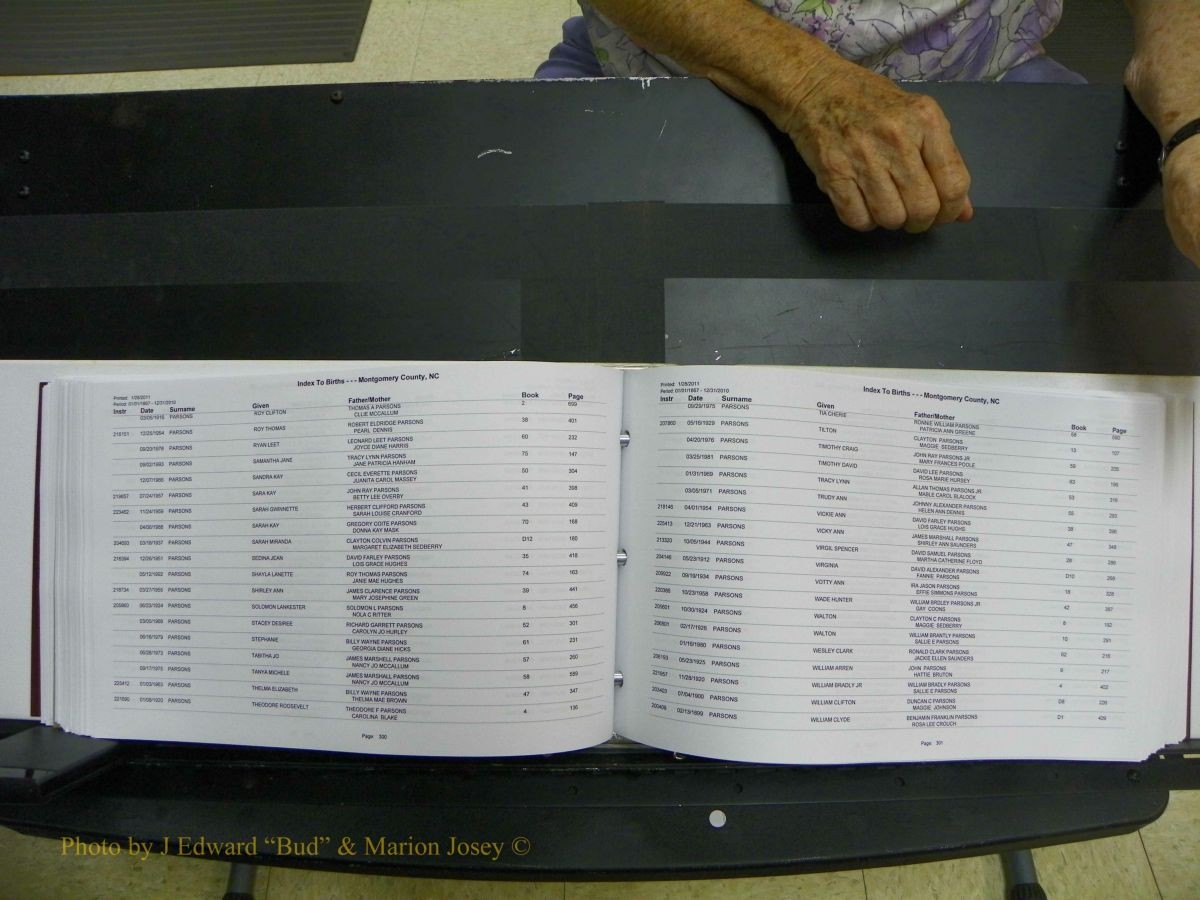 Index To Births - - - Montgomery County, NC
Printed: 1/28/2011
Period: 01/01/1867 - 12/31/2010
Instr Date Surname Given Father/Mother Book Page
03/05/1916 PARSONS ROY CLIFTON THOMAS A PARSONS 2 699
CLLIE MCCALLUM
218151 12/25/1954 PARSONS ROY THOMAS ROBERT ELDRIDGE PARSONS 38 401
PEARL DENNIS
09/20/1978 PARSONS RYAN LEET LEONARD LEET PARSONS 60 232
JOYCE DIANE HARRIS
09/02/1993 PARSONS SAMANTHA JANE TRACY LYNN PARSONS 75 147
JANE PATRICIA HANHAM
12/07/1966 PARSONS SANDRA KAY CECIL EVERETTE PARSONS 50 304
JUANITA CAROL MASSEY
219657 07/24/1957 PARSONS SARA KAY JOHN RAY PARSONS 41 398
BETTY LEE OVERBY
223452 11/24/1959 PARSONS SARAH GWYNETTE HERBERT CLIFFORD PARSONS 43 409
SARAH LOUISE CRANFORD
04/06/1988 PARSONS SARAH KAY GREGORY COITE PARSONS 70 168
DONNA KAY MASK
204603 03/18/1937 PARSONS SARAH MIRANDA CLAYTON COLVIN PARSONS D12 180
MARGARET ELIZABETH SEDBERRY
216394 12/26/1951 PARSONS SEDINA JEAN DAVID FARLEY PARSONS 35 418
LOIS GRACE HUGHES
05/12/1992 PARSONS SHAYLA LANETTE ROY THOMAS PARSONS 74 163
JANIE MAE HUGHES
218734 03/27/1955 PARSONS SHIRLEY ANN JAMES CLARENCE PARSONS 39 441
MARY JOSEPHINE GREEN
205960 06/23/1924 PARSONS SOLOMON LANKESTER SOLOMON L PARSONS 8 456
NOLA C RITTER
03/05/1969 PARSONS STACEY DESIREE RICHARD GARRETT PARSONS 52 301
CAROLYN JO HURLEY
06/16/1979 PARSONS STEPHANIE BILLY WAYNE PARSONS 61 231
GEORGIA DIANE HICKS
06/28/1973 PARSONS TABITHA JO JAMES MARSHALL PARSONS 57 260
NANCY JO MCCALLUM
09/17/1975 PARSONS TANYA MICHELE JAMES MARSHALL PARSONS 58 589
NANCY JO MCCALLUM
225412 01/03/1963 PARSONS THELMA ELIZABETH BILLY WAYNE PARSONS 47 347
THELMA MAE BROWN
221690 01/08/1920 PARSONS THEODORE ROOSEVELT THEODORE F PARSONS 4 136
CAROLINA BLAKE
Page: 300
Index To Births - - - Montgomery County, NC
Printed: 1/28/2011
Period: 01/01/1867 - 12/31/2010
Instr Date Surname Given Father/Mother Book Page
09/29/1975 PARSONS TIA CHERIE RONNIE WILLIAM PARSONS 58 590
PATRICIA ANN GREENE
207860 05/16/1929 PARSONS TILTON CLAYTON PARSONS 13 107
MAGGIE SEDBERRY
04/20/1976 PARSONS TIMOTHY CRAIG JOHN RAY PARSONS JR 59 209
MARY FRANCES POOLE
03/25/1981 PARSONS TIMOTHY DAVID DAVID LEE PARSONS 63 196
ROSA MARIE HURSEY
01/31/1969 PARSONS TRACY LYNN ALLAN THOMAS PARSONS JR 53 316
MABLE CAROL BLALOCK
03/05/1971 PARSONS TRUDY ANN JOHNNY ALEXANDER PARSONS 55 293
HELEN ANN DENNIS
218146 04/01/1954 PARSONS VICKIE ANN DAVID FARLEY PARSONS 38 396
LOIS GRACE HUGHS
225413 12/21/1963 PARSONS VICKY ANN JAMES MARSHALL PARSONS 47 348
SHIRLEY ANN SAUNDERS
213320 10/05/1944 PARSONS VIRGIL SPENCER DAVID SAMUEL PARSONS 28 286
MARTHA CATHERINE FLOYD
204146 05/23/1912 PARSONS VIRGINIA DAVID ALEXANDER PARSONS D10 268
FANNIE PARSONS
209922 09/19/1934 PARSONS VOTTY ANN IRA JASON PARSONS 18 328
EFFIE SIMMONS PARSONS
220386 10/23/1958 PARSONS WADE HUNTER WILLIAM BRDLEY PARSONS JR 42 387
GAY COONS
205601 10/30/1924 PARSONS WALTON CLAYTON C PARSONS 8 192
MAGGIE SEDBERRY
206801 02/17/1926 PARSONS WALTON WILLIAM BRANTLY PARSONS 10 291
SALLIE E PARSONS
01/16/1980 PARSONS WESLEY CLARK RONALD CLARK PARSONS 62 216
JACKIE ELLEN SAUNDERS
206193 05/23/1925 PARSONS WILLIAM ARREN JOHN PARSONS 9 217
HATTIE BRUTON
221957 11/28/1920 PARSONS WILLIAM BRADLY JR WILLIAM BRADLY PARSONS 4 402
SALLIE E PARSONS
203403 07/04/1900 PARSONS WILLIAM CLIFTON DUNCAN C PARSONS D8 226
MAGGIE JOHNSON
200409 02/13/1899 PARSONS WILLIAM CLYDE BENJAMIN FRANKLIN PARSONS D1 409
ROSA LEE CROUCH
Page: 301
Photo by J Edward “Bud” & Marion Josey ©